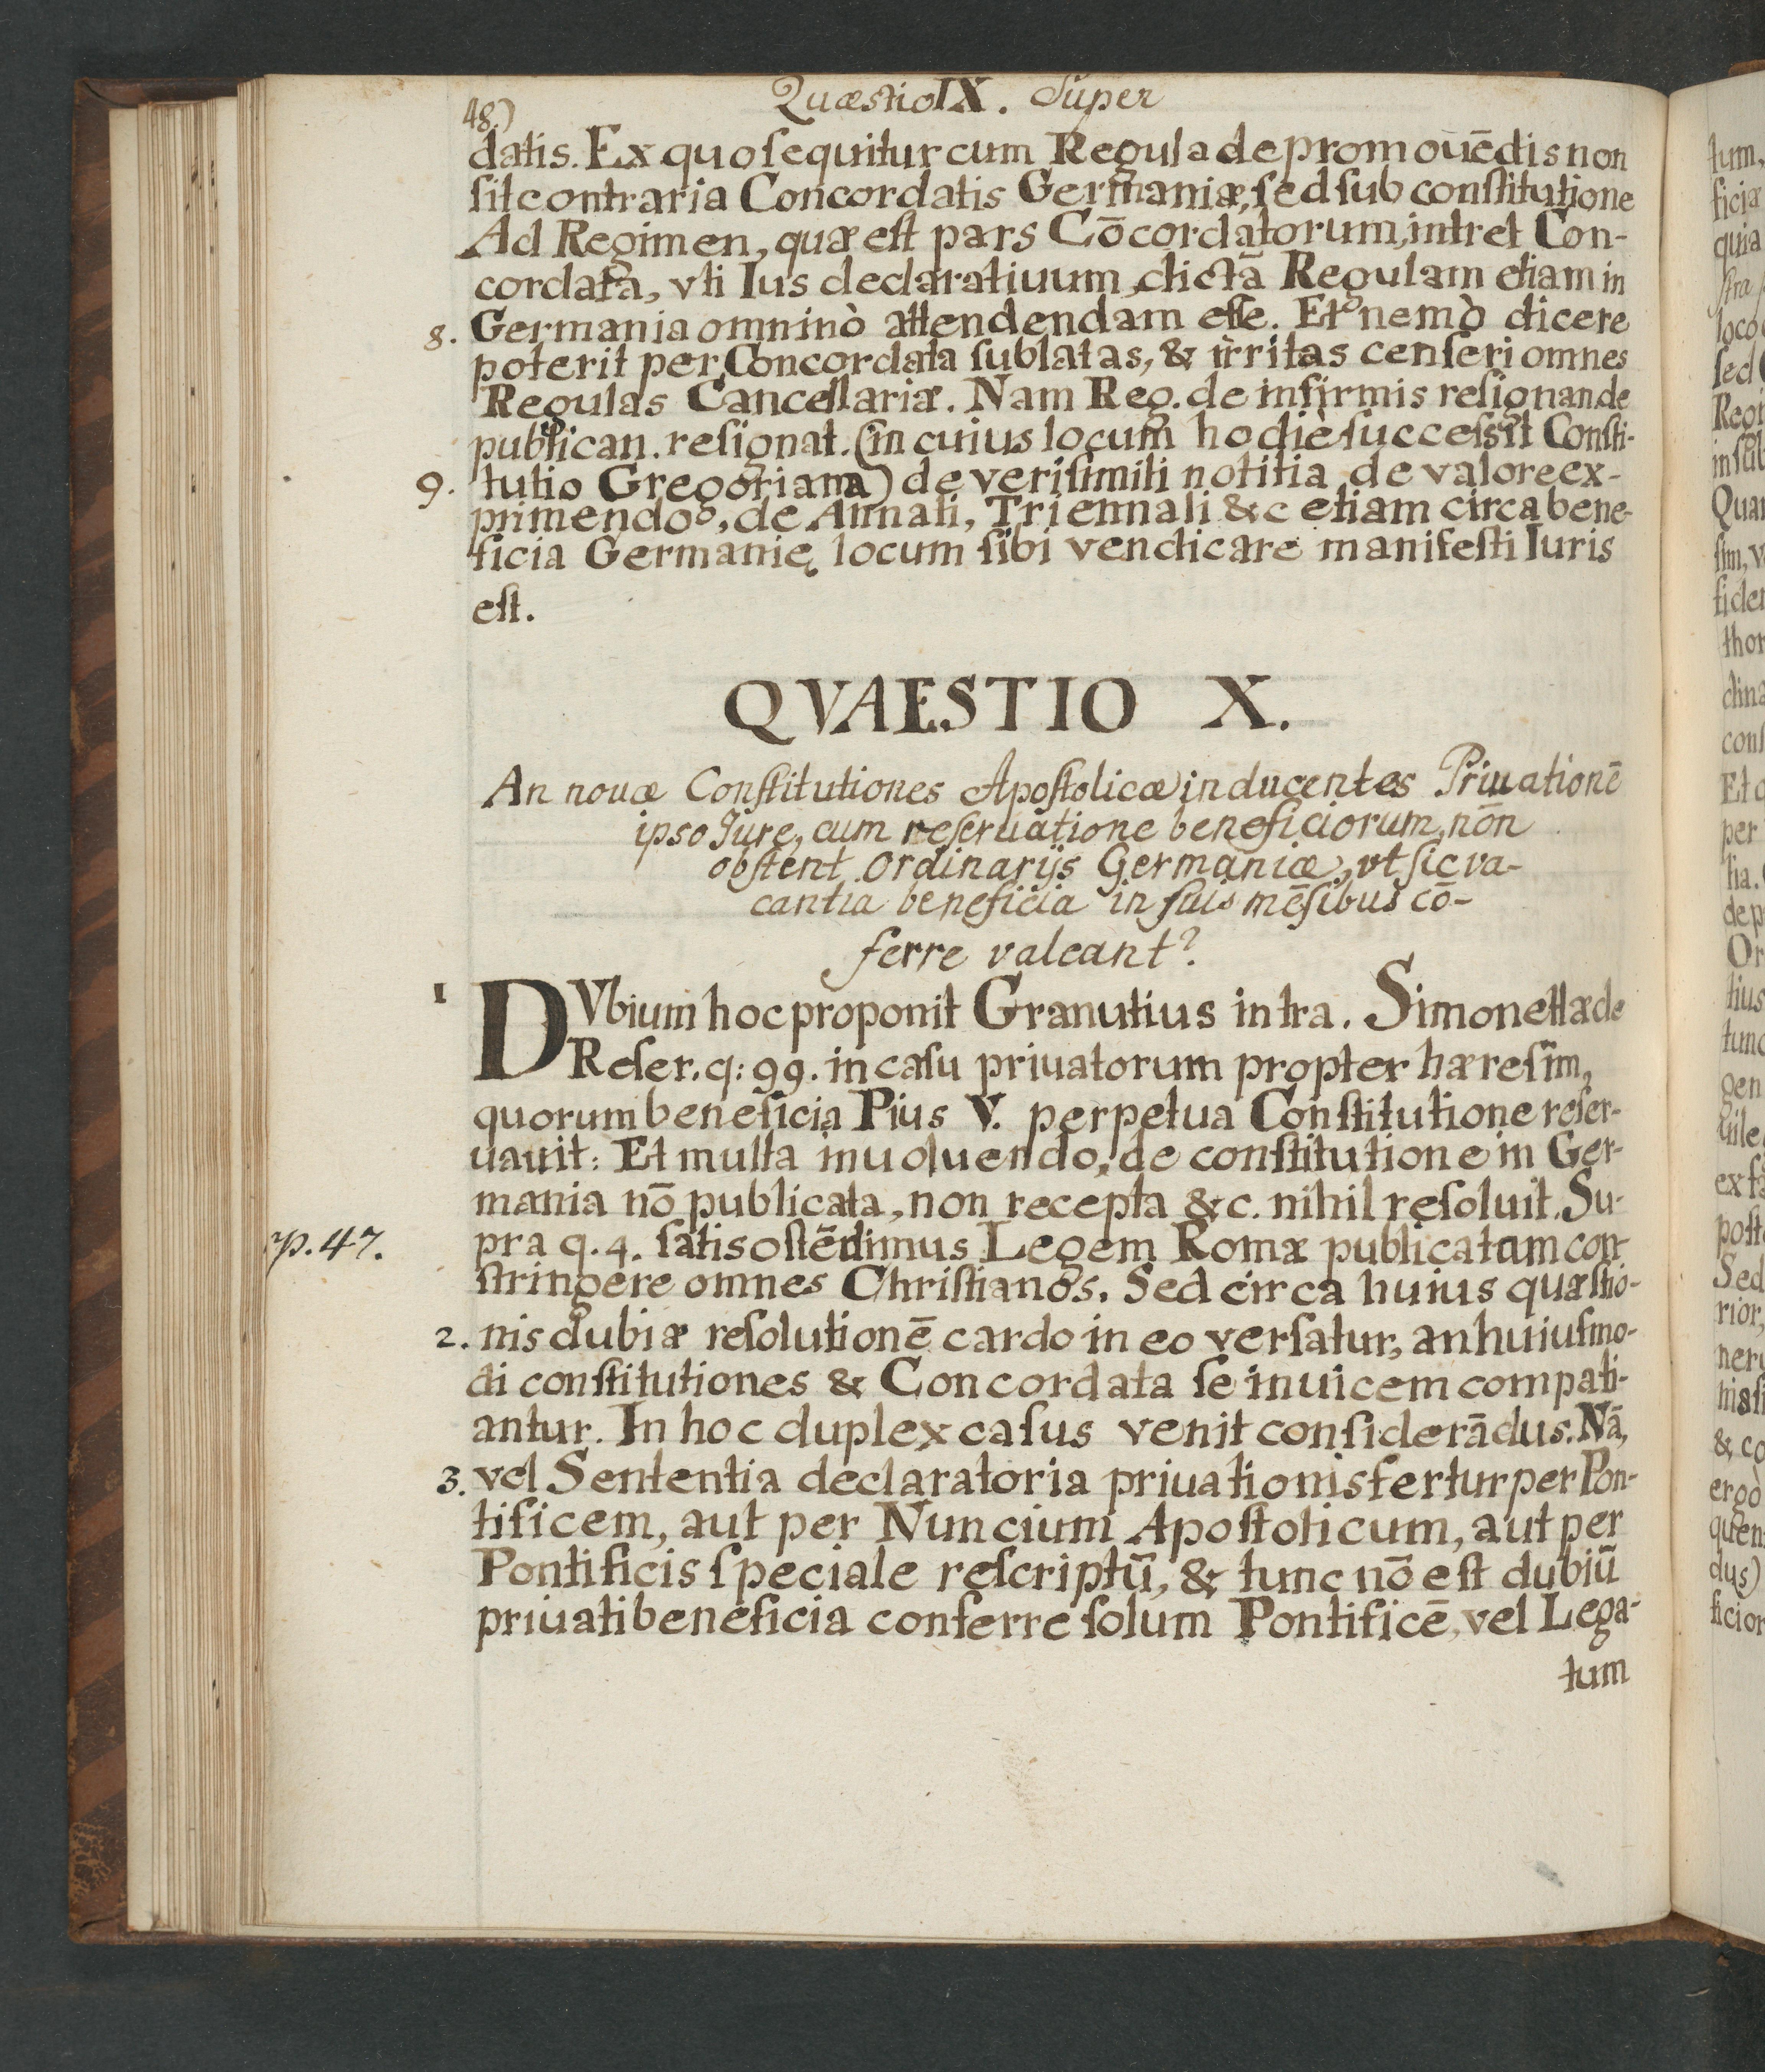 48.)
Quæstio IX. Super
datis. Ex quo ſequitur cum Regula de promouēdis non
ſit contraria Concordatis Germaniæ, ſed ſub conſtitutione
Ad Regimen, quæ eſt pars Cōcordatorum, intret Con-
cordata, vti Ius declaratiuum, dictā Regulam etiam in
8. Germania omninò attendendam eſſe. Et o nemò dicere
poterit per Concordata ſublatas, & irritas cenſeri omnes
Regulas Cancellariæ. Nam Reg. de infirmis reſignan. de
publican. reſignat. (in cuius locum hodiè ſucceſsit Conſti-
9. tutio Gregoriana) de veriſimili notitia, de valore ex-
primendo o, de Annali, Triennali &c etiam circa bene-
ficia Germanię locum ſibi vendicare manifeſti Iuris
eſt.
QVAESTIO X.
An nouæ Conſtitutiones Apoſtolicæ inducentes Priuationē
ipso Jure, cum reſeruatione beneficiorum, nōn
obſtent Ordinarijs Germaniæ, vt ſic va-
cantia beneficia in ſuis mēſibus cō-
ferre valeant?
1 DVbium hoc proponit Granutius in tra. Simonettæ de
Reſer. q: 99. in caſu priuatorum propter hæreſim,
quorum beneficia Pius V. perpetua Conſtitutione reſer-
uauit: Et multa inuoluendo, de conſtitutione in Ger-
mania nō publicata, non recepta &c. nihil reſoluit. Su-
p. 47. pra q. 4. ſatis oſtēdimus Legem Romæ publicatam con-
ſtringere omnes Chriſtianos. Sed circa huius quæſtio-
2. nis dubiæ reſolutionē cardo in eo verſatur, an huiuſmo-
di conſtitutiones & Concordata ſe inuicem compati-
antur. In hoc duplex caſus venit conſiderādus. Nā,
3. vel Sententia declaratoria priuationis fertur per Pon-
tificem, aut per Nuncium Apoſtolicum, aut per
Pontificis ſpeciale reſcriptū, & tunc nō eſt dubiū
priuati beneficia conferre ſolum Pontificē, vel Lega-
tum